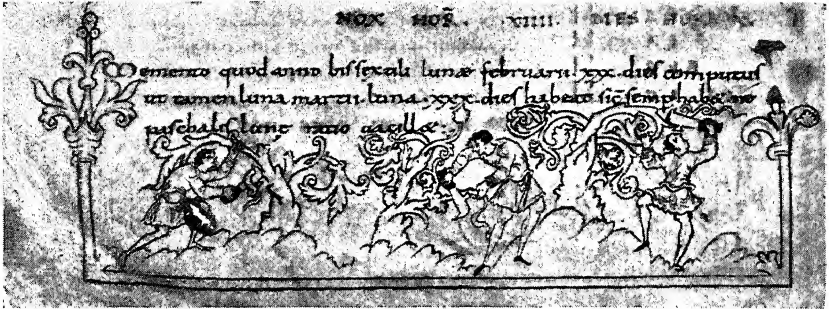 NOX HOR̄. XIIII. DIES
Memento quod anno bissextili lunæ februarii .xxx. dies computus
ut tamen luna martii luna .xxx. dies habeat sic semp habeæ ne
paschalis lunę ratio uacillæ